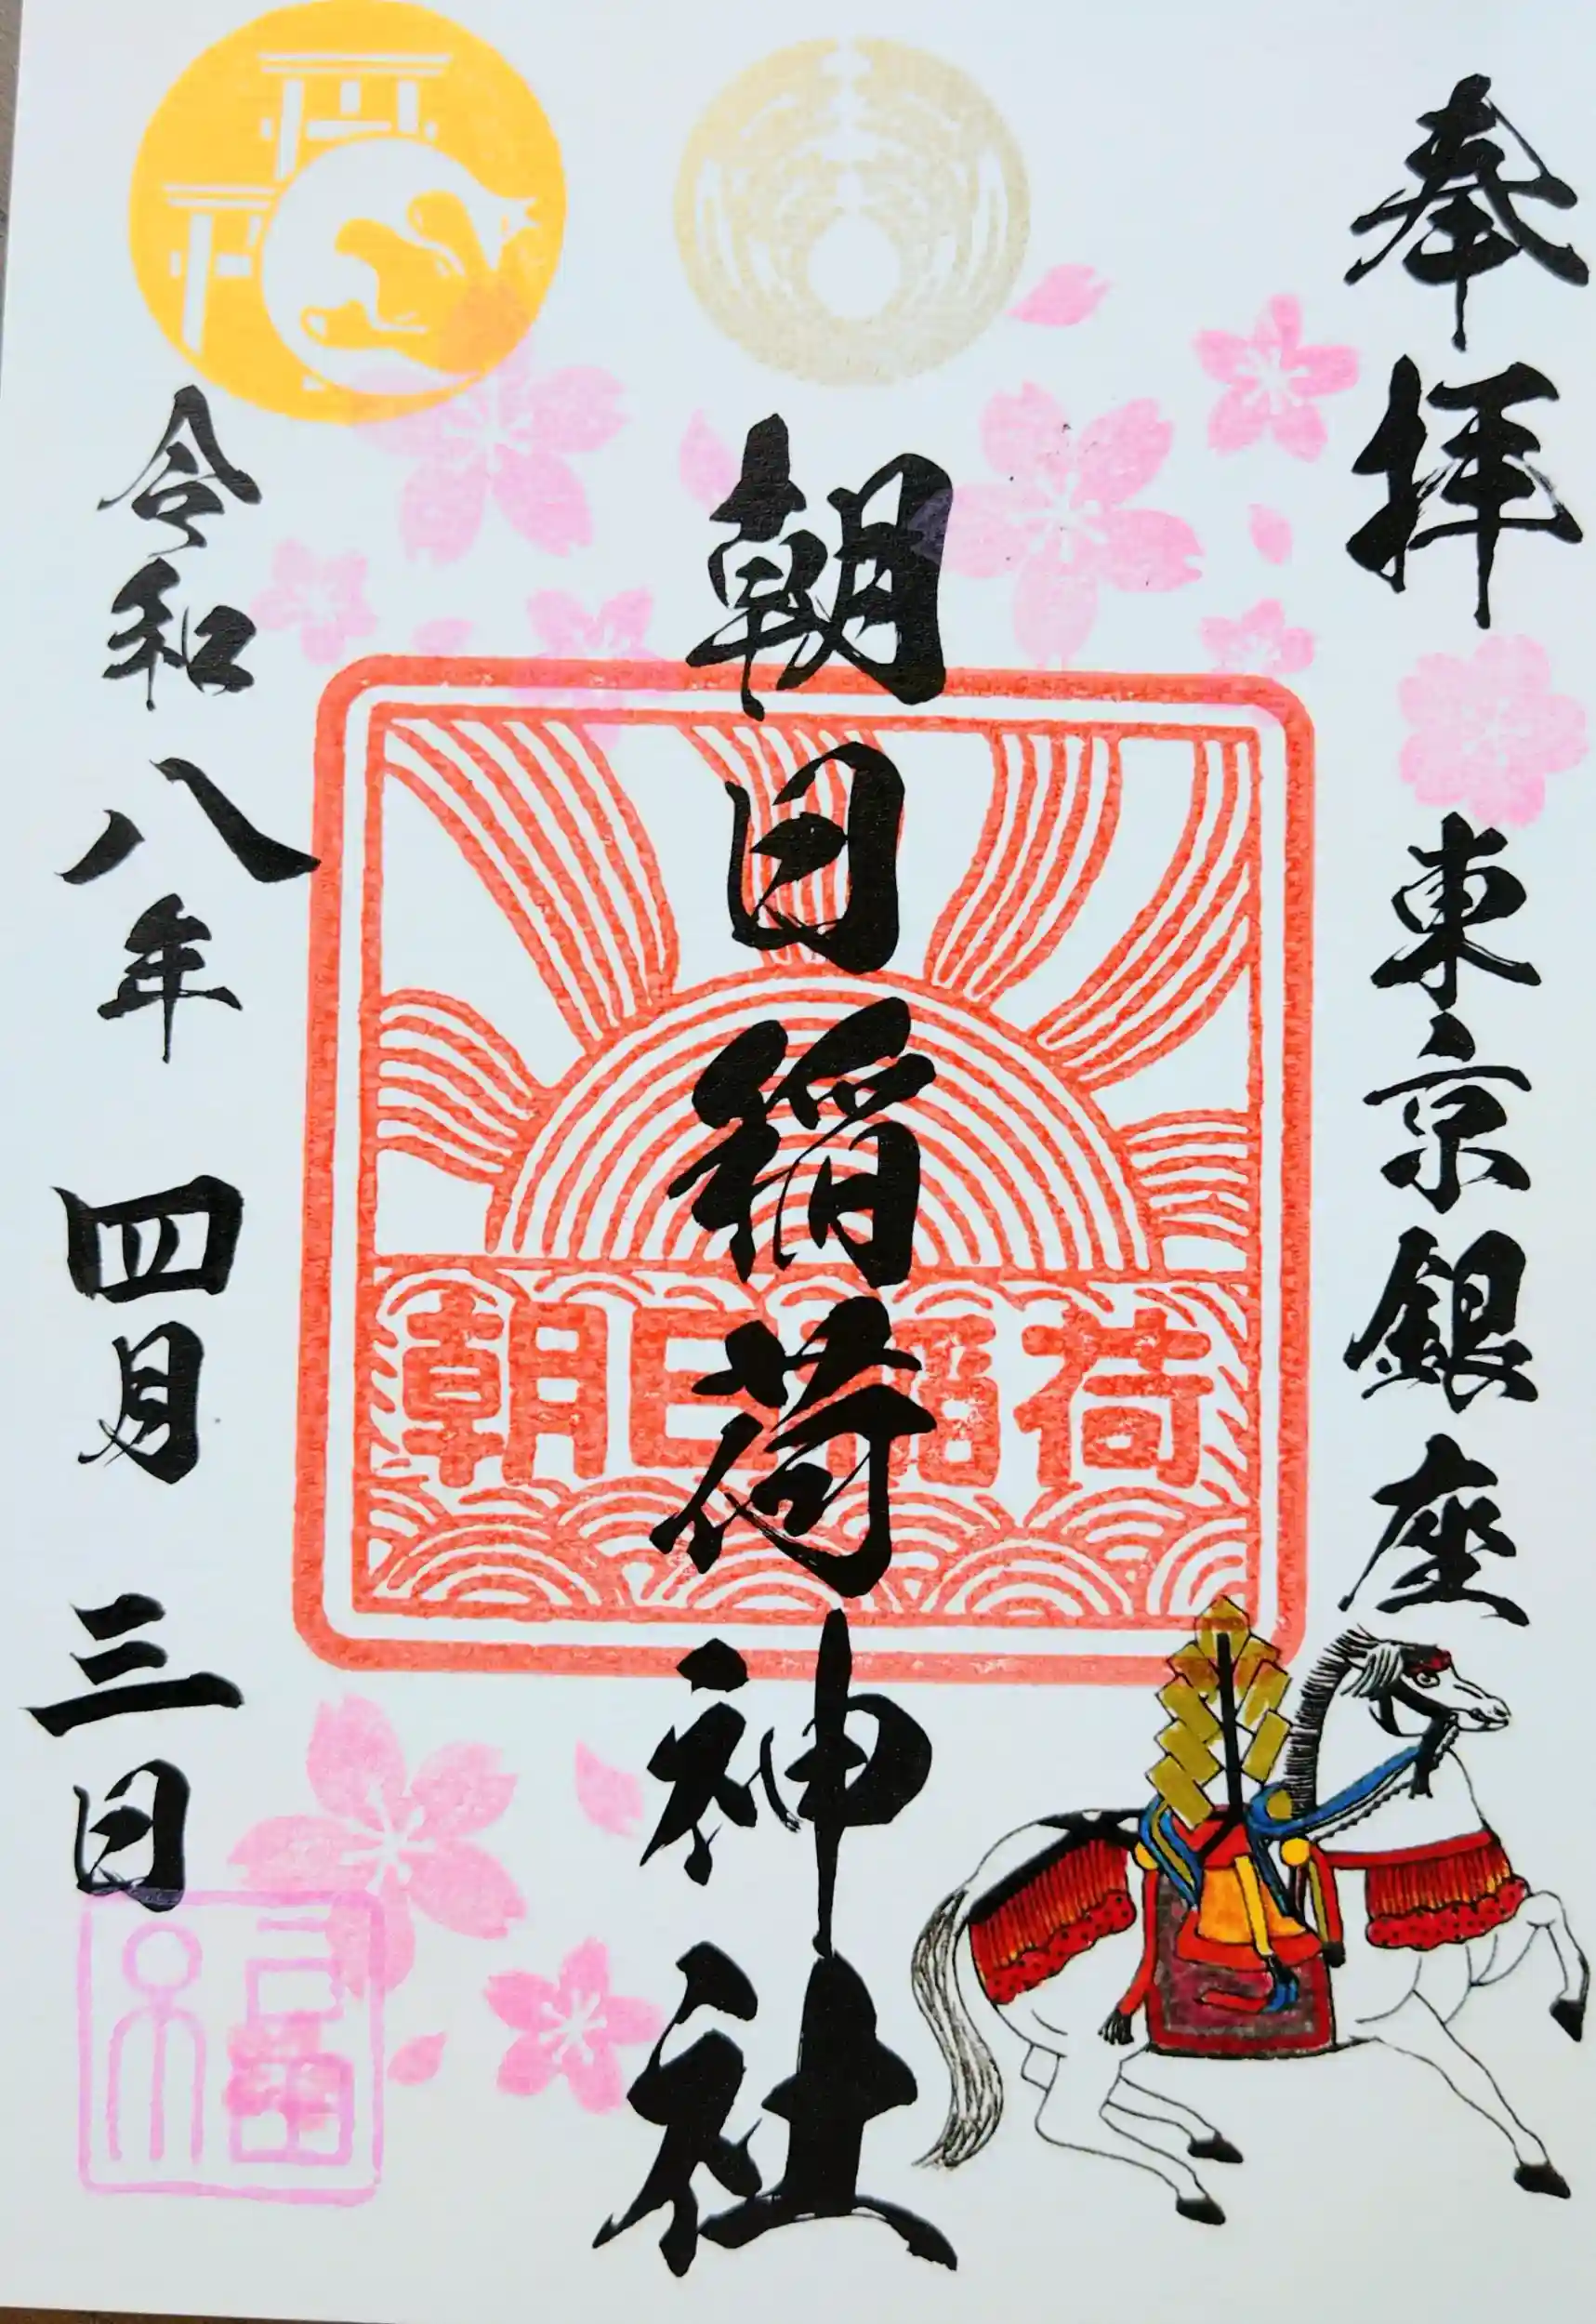 奉拝
東京銀座
朝日稲荷神社
朝日稲荷
令和八年 四月 三日
福